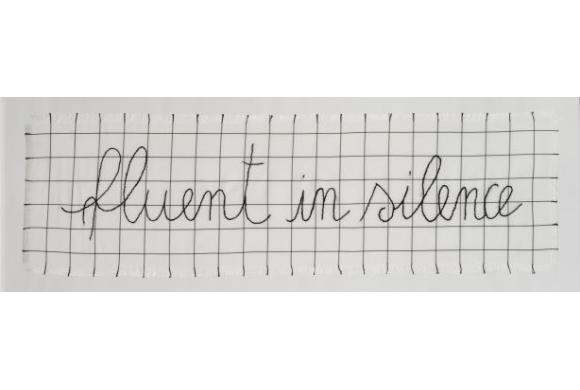 fluent in silence